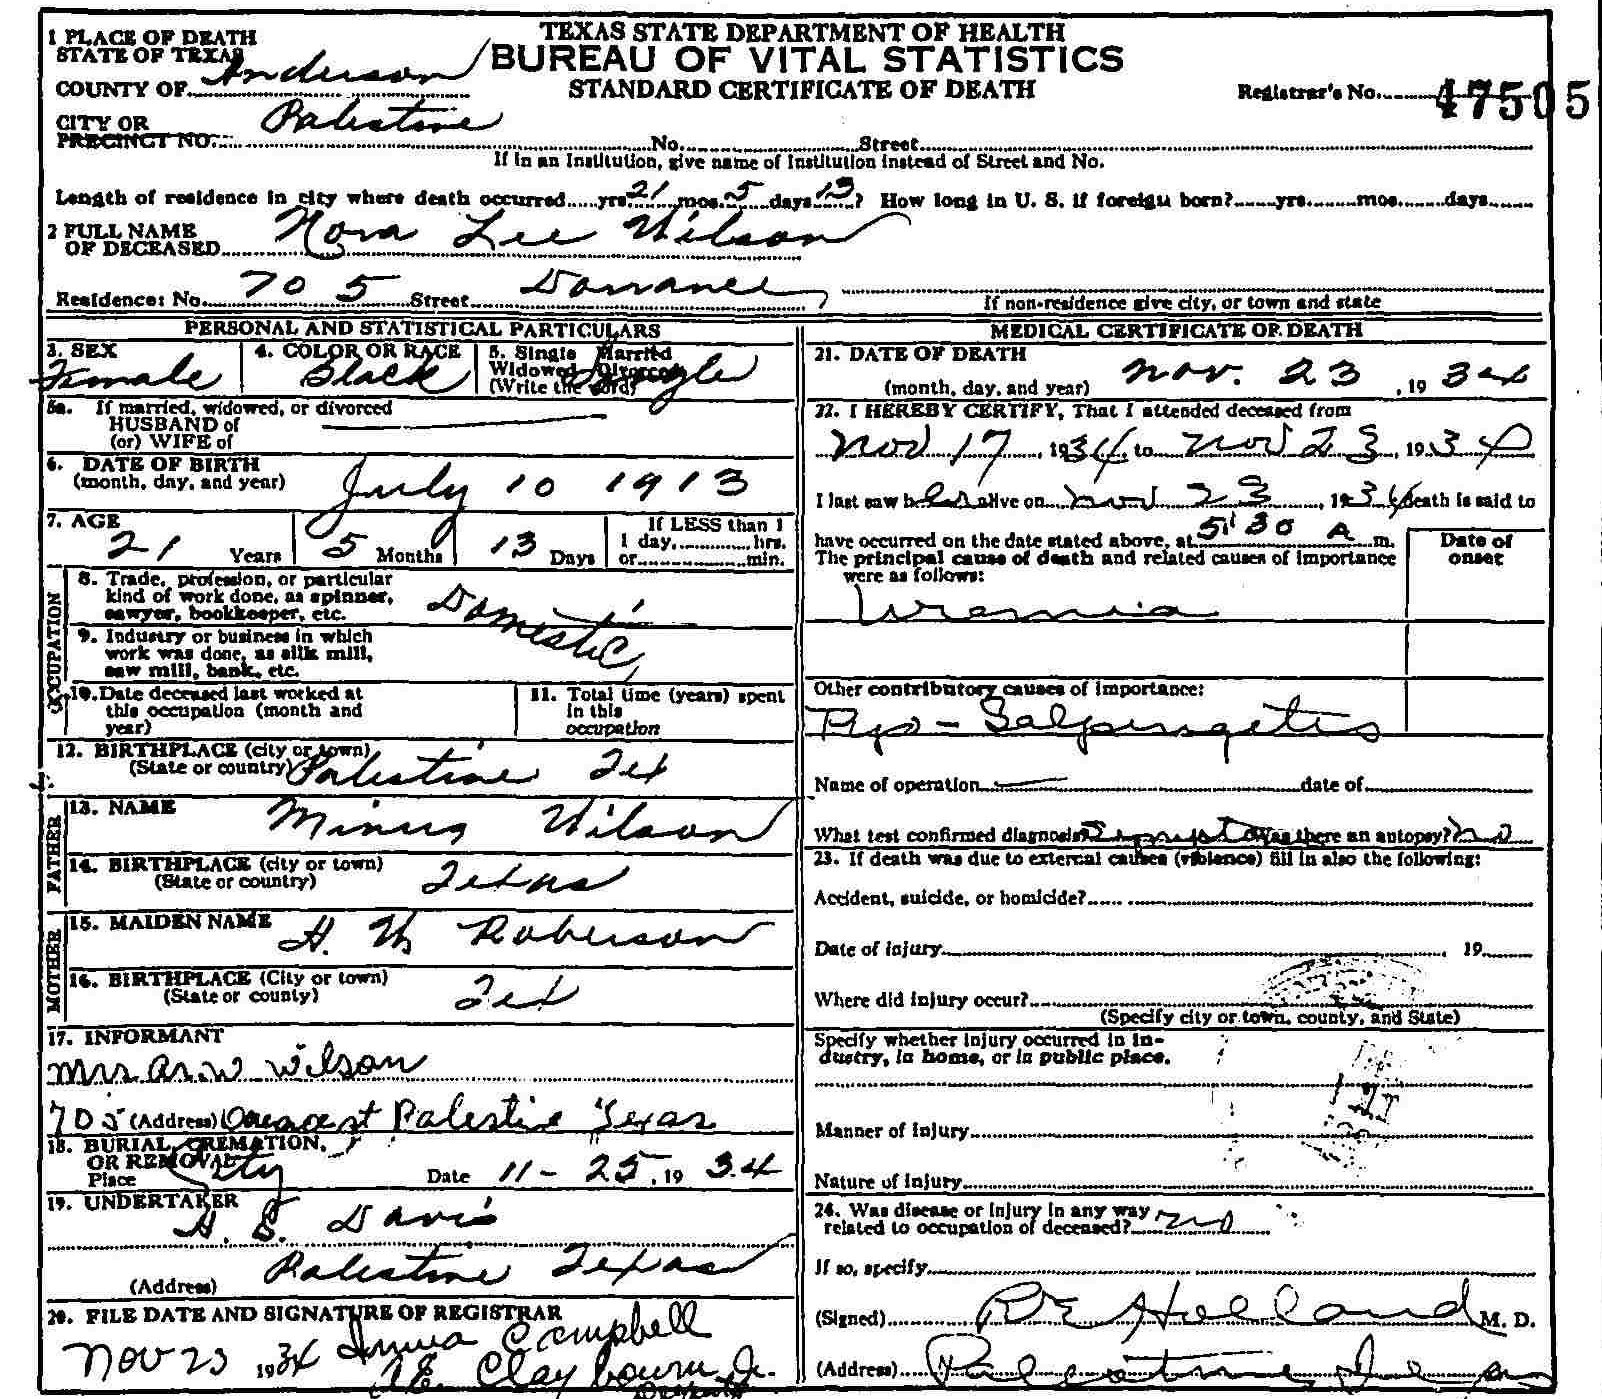 TEXAS STATE DEPARTMENT OF HEALTH
BUREAU OF VITAL STATISTICS
STANDARD CERTIFICATE OF DEATH
1 PLACE OF DEATH
STATE OF TEXAS
COUNTY OF Anderson
Registrar's No. 47505
CITY OR
PRECINCT NO. Palestine No. Street
If in an Institution, give name of Institution instead of Street and No.
Length of residence in city where death occurred yrs. 21 mos. 5 days 13? How long in U. S. if foreign born? yrs. mos. days
2 FULL NAME
OF DECEASED Nora Lee Wilson
Residence: No. 705 Street Dorrance
If non-residence give city, or town and state
PERSONAL AND STATISTICAL PARTICULARS
3. SEX
Female
4. COLOR OR RACE
Black
5. Single Married
Widowed Divorced
(Write the word) Single
5a. If married, widowed, or divorced
HUSBAND of
(or) WIFE of
6. DATE OF BIRTH
(month, day, and year) July 10 1913
7. AGE
21 Years 5 Months 13 Days
If LESS than 1
1 day, hrs.
or min.
OCCUPATION
8. Trade, profession, or particular
kind of work done, as spinner,
sawyer, bookkeeper, etc. Domestic
9. Industry or business in which
work was done, as silk mill,
saw mill, bank, etc.
10. Date deceased last worked at
this occupation (month and
year)
11. Total time (years) spent
in this
occupation
12. BIRTHPLACE (city or town)
(State or country) Palestine Tex
FATHER
13. NAME Wilson
14. BIRTHPLACE (city or town)
(State or country) Texas
MOTHER
15. MAIDEN NAME Roberson
16. BIRTHPLACE (City or town)
(State or county) Tex
17. INFORMANT
Mrs Wilson
705 (Address) Palestine Texas
18. BURIAL, CREMATION,
OR REMOVAL
Place City Date 11-25, 1934
19. UNDERTAKER
Davis
(Address) Palestine Texas
20. FILE DATE AND SIGNATURE OF REGISTRAR
Nov 23 1934 Campbell
A.E. Claybourn Jr.
MEDICAL CERTIFICATE OF DEATH
21. DATE OF DEATH
(month, day, and year) Nov. 23, 1934
22. I HEREBY CERTIFY, That I attended deceased from
Nov 17, 1934, to Nov 23, 1934
I last saw her alive on Nov 23, 1934, death is said to
have occurred on the date stated above, at 5:30 A m.
The principal cause of death and related causes of importance
were as follows:
Date of
onset
Uremia
Other contributory causes of importance:
Pyo-Salpingetis
Name of operation date of
What test confirmed diagnosis? Was there an autopsy? no
23. If death was due to external causes (violence) fill in also the following:
Accident, suicide, or homicide?
Date of injury , 19
Where did injury occur?
(Specify city or town, county, and State)
Specify whether injury occurred in in-
dustry, in home, or in public place.
Manner of injury
Nature of injury
24. Was disease or injury in any way
related to occupation of deceased? no
If so, specify
(Signed) Holland M. D.
(Address) Palestine, Texas